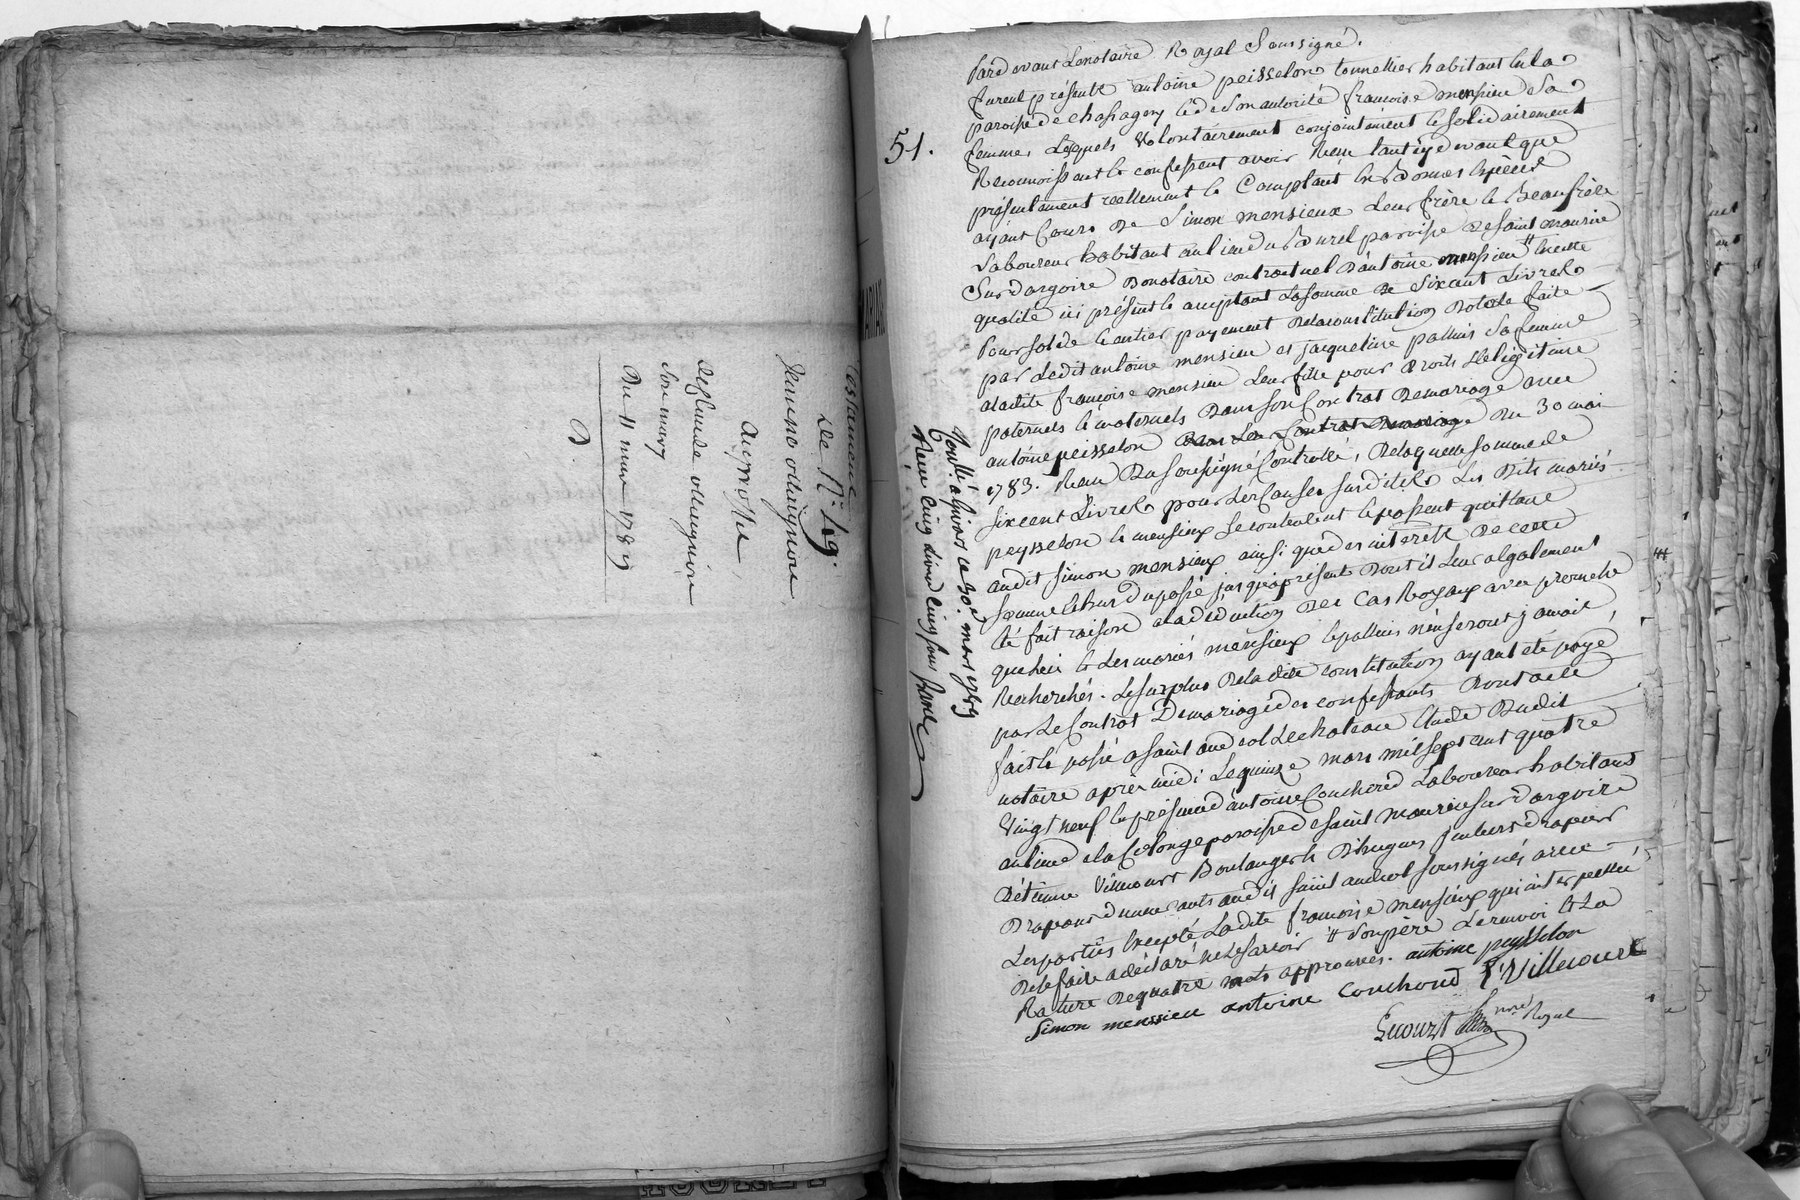 Testament
de N.º 49.
Jeanne
au proffit
de Claude
son mary
Du 11 mars 1789
D.
51.
Pardevant Lenotaire Royal Soussigné.
furent présents antoine peisselon tonnellier habitant en la
paroisse de chassagny & de Son autorité françoise mensieu Sa
femme, Lesquels Volontairement conjointement & solidairement
Reconnoissent & confessent avoir Reçu tant cydevant que
présentement reellement & Comptant En Bonnes Espèces
ayant Cours De Simon mensieux Leur frère & Beaufrère
Laboureur habitant au lieu du Burel paroisse de saint maurice
Sur dargoire Donataire contractuel D'antoine mensieu # En cette
qualité ici présent & acceptant La Somme De Sixcent Livres
Pour solde & entier payement De la constitution Dotale faite
par Ledit antoine mensieu et jacqueline palluis Sa femme
aladite françoise mensieu Leur fille pour Droits De légitime
paternels & maternels Dans son Contrat De mariage avec
antoine peisselon Du 30 mai
1783. Reçu Du Soussigné Controllé, De laquelle somme de
sixcent Livres pour Les Causes Susdites Les Dits mariés
peysselon & mensieux Se contentent & passent quittance
audit Simon mensieux ainsi que des intérêts De cette
Somme jusqu'à présent Dont il Leur a également
été fait raison à la déduction Des Cas Royaux avec promesse
que Lui & Les mariés mensieux & palluis n'en seront jamais
Recherchés. Le surplus De la dite constitution ayant été payé
par Le Contrat De mariage des confessants Dont acte
fait & passé a saint andeol Le chateau Etude Dudit
notaire après midi Le quinze mars mil sept cent quatre
Vingt neuf En présence d'antoine Couchoud Laboureur habitant
au lieu de la Colonge paroisse de saint maurice sur dargoire
& étienne Villecourt Boulanger & Drapeaux demeurants audit saint andeol soussignés avec
Les parties Excepté Ladite françoise mensieux qui interpellée
De le faire a déclaré ne Le savoir # Son père Le renvoi & La
Rature De quatre mots approuvés. antoine peysselon
Simon menssieu antoine Couchoud E. Villecourt
nore Royal
Conllé a Givors ce 30e mars 1789
Reçu Cinq Livres Cinq Sous